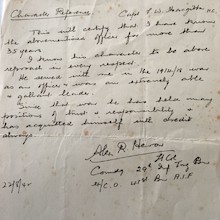 Character Reference    Capt P. W.
This will certify that I have known
the abovementioned officer for more than
35 years
I know his character to be above
reproach in every respect.
He served with me in the 1914/18 war
as an officer & was an extremely able
& gallant leader.
Since that war he has held many
positions of trust & responsibility &
has acquitted himself with credit
always.
Alex R.
Comdg 29th Inf Trg Bn
C.O. 41st Bn A.I.F